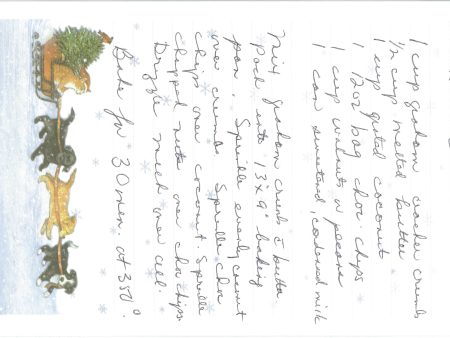 1 cup graham cracker crumbs
1/2 cup melted butter
1 cup grated coconut
1 12oz bag choc. chips
1 cup walnuts or pecans
1 can sweetened, condensed milk
Mix graham crumbs c̄ butter
pack into 13"x9" baking
pan. Sprinkle evenly coconut
over crumbs. Sprinkle choc
chips over coconut. Sprinkle
chopped nuts over choc chips.
Drizzle milk over all.
Bake for 30 min. at 350°.